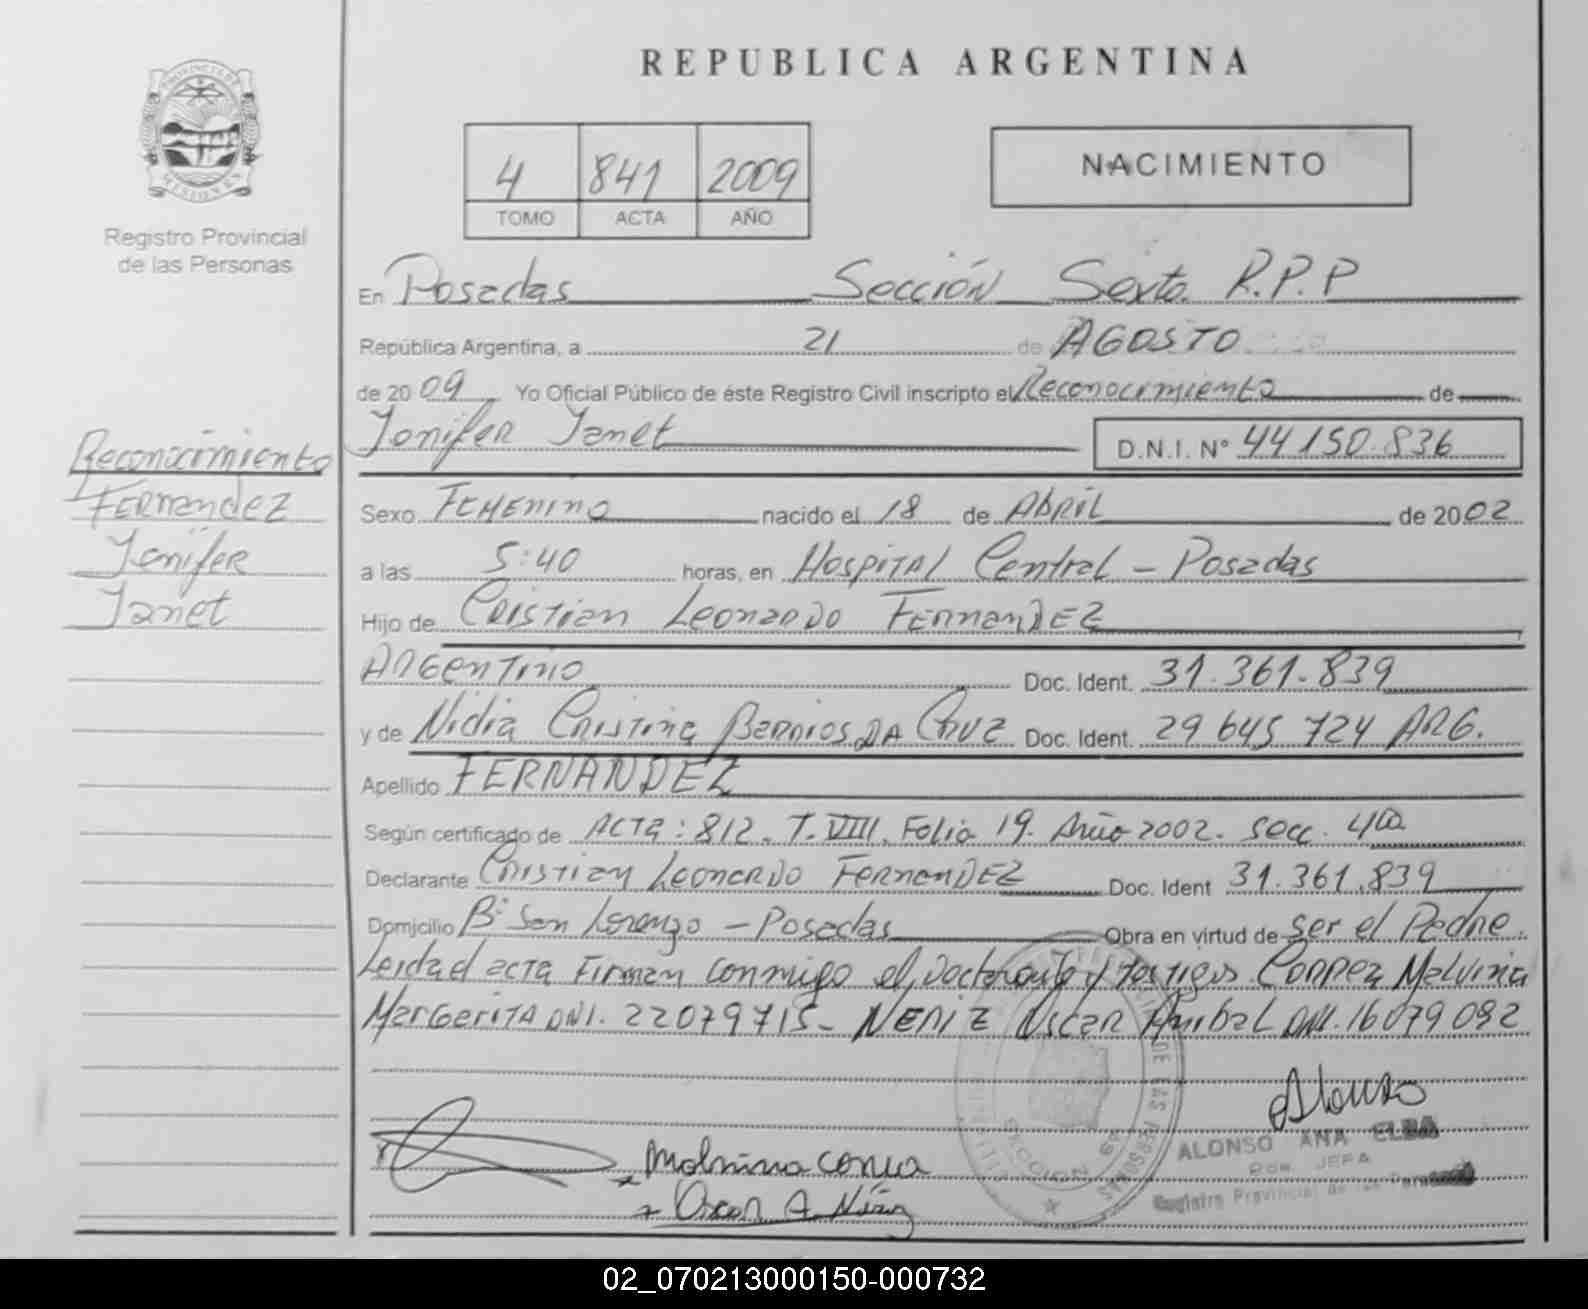 REPUBLICA ARGENTINA
PROVINCIA DE
MISIONES
Registro Provincial
de las Personas
4 841 2009
TOMO ACTA AÑO
NACIMIENTO
En Posadas Sección Sexta R.P.P
República Argentina, a 21 de AGOSTO
de 2009 Yo Oficial Público de éste Registro Civil inscripto el Reconocimiento de
Jenifer Janet D.N.I. N° 44150.836
Reconocimiento
Fernandez
Jenifer
Janet
Sexo FEMENINO nacido el 18 de Abril de 2002
a las 5:40 horas, en Hospital Central - Posadas
Hijo de Cristian Leonardo Fernandez
Argentino Doc. Ident. 31.361.839
y de Nidia Cristina Berrios DA Cruz Doc. Ident. 29 645 724 ARG.
Apellido FERNANDEZ
Según certificado de Acta: 812. T. VIII. Folio 19. Año 2002. Secc. 4ta
Declarante Cristian Leonardo Fernandez Doc. Ident 31.361.839
Domicilio B° San Lorenzo - Posadas Obra en virtud de ser el Padre.
Leida el acta Firman conmigo el, y testigos Correa Malvina
Margarita DNI. 22079715- Oscar Anibal DNI. 16079092
Alonso
ALONSO ANA ELBA
JEFA
Registro Provincial de las Personas
Malvina Correa
Oscar A.
DE LAS PERSONAS
SECCION 6a
02_070213000150-000732